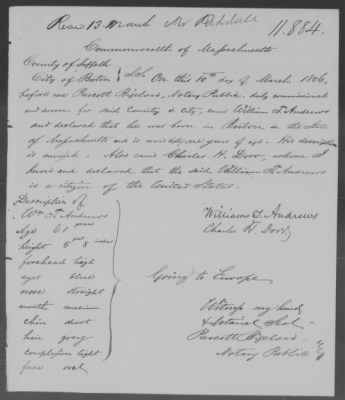 Recd 13 March Mr Riddall 11.884.
Commonwealth of Massachusetts
County of Suffolk
City of Boston } S.S. On this 10th day of March 1856,
before me Prescott Bigelow, Notary Public, duly commissioned
and sworn for said County & City, came William T. Andrews
and declared that he was born in Boston in the State
of Massachusetts and is now sixty one years of age. His description
is annexed. Also came Charles H. Dorr, whom I
know and declared that the said William T. Andrews
is a citizen of the United States.
Description of
Wm T. Andrews
Age 61 years
height 5 feet 8 inches
forehead high
eyes blue
nose straight
mouth medium
chin short
hair grey
complexion light
face oval
William T. Andrews
Charles H. Dorr
Going to Europe
Witness my hand
& Notarial Seal
Prescott Bigelow
Notary Public